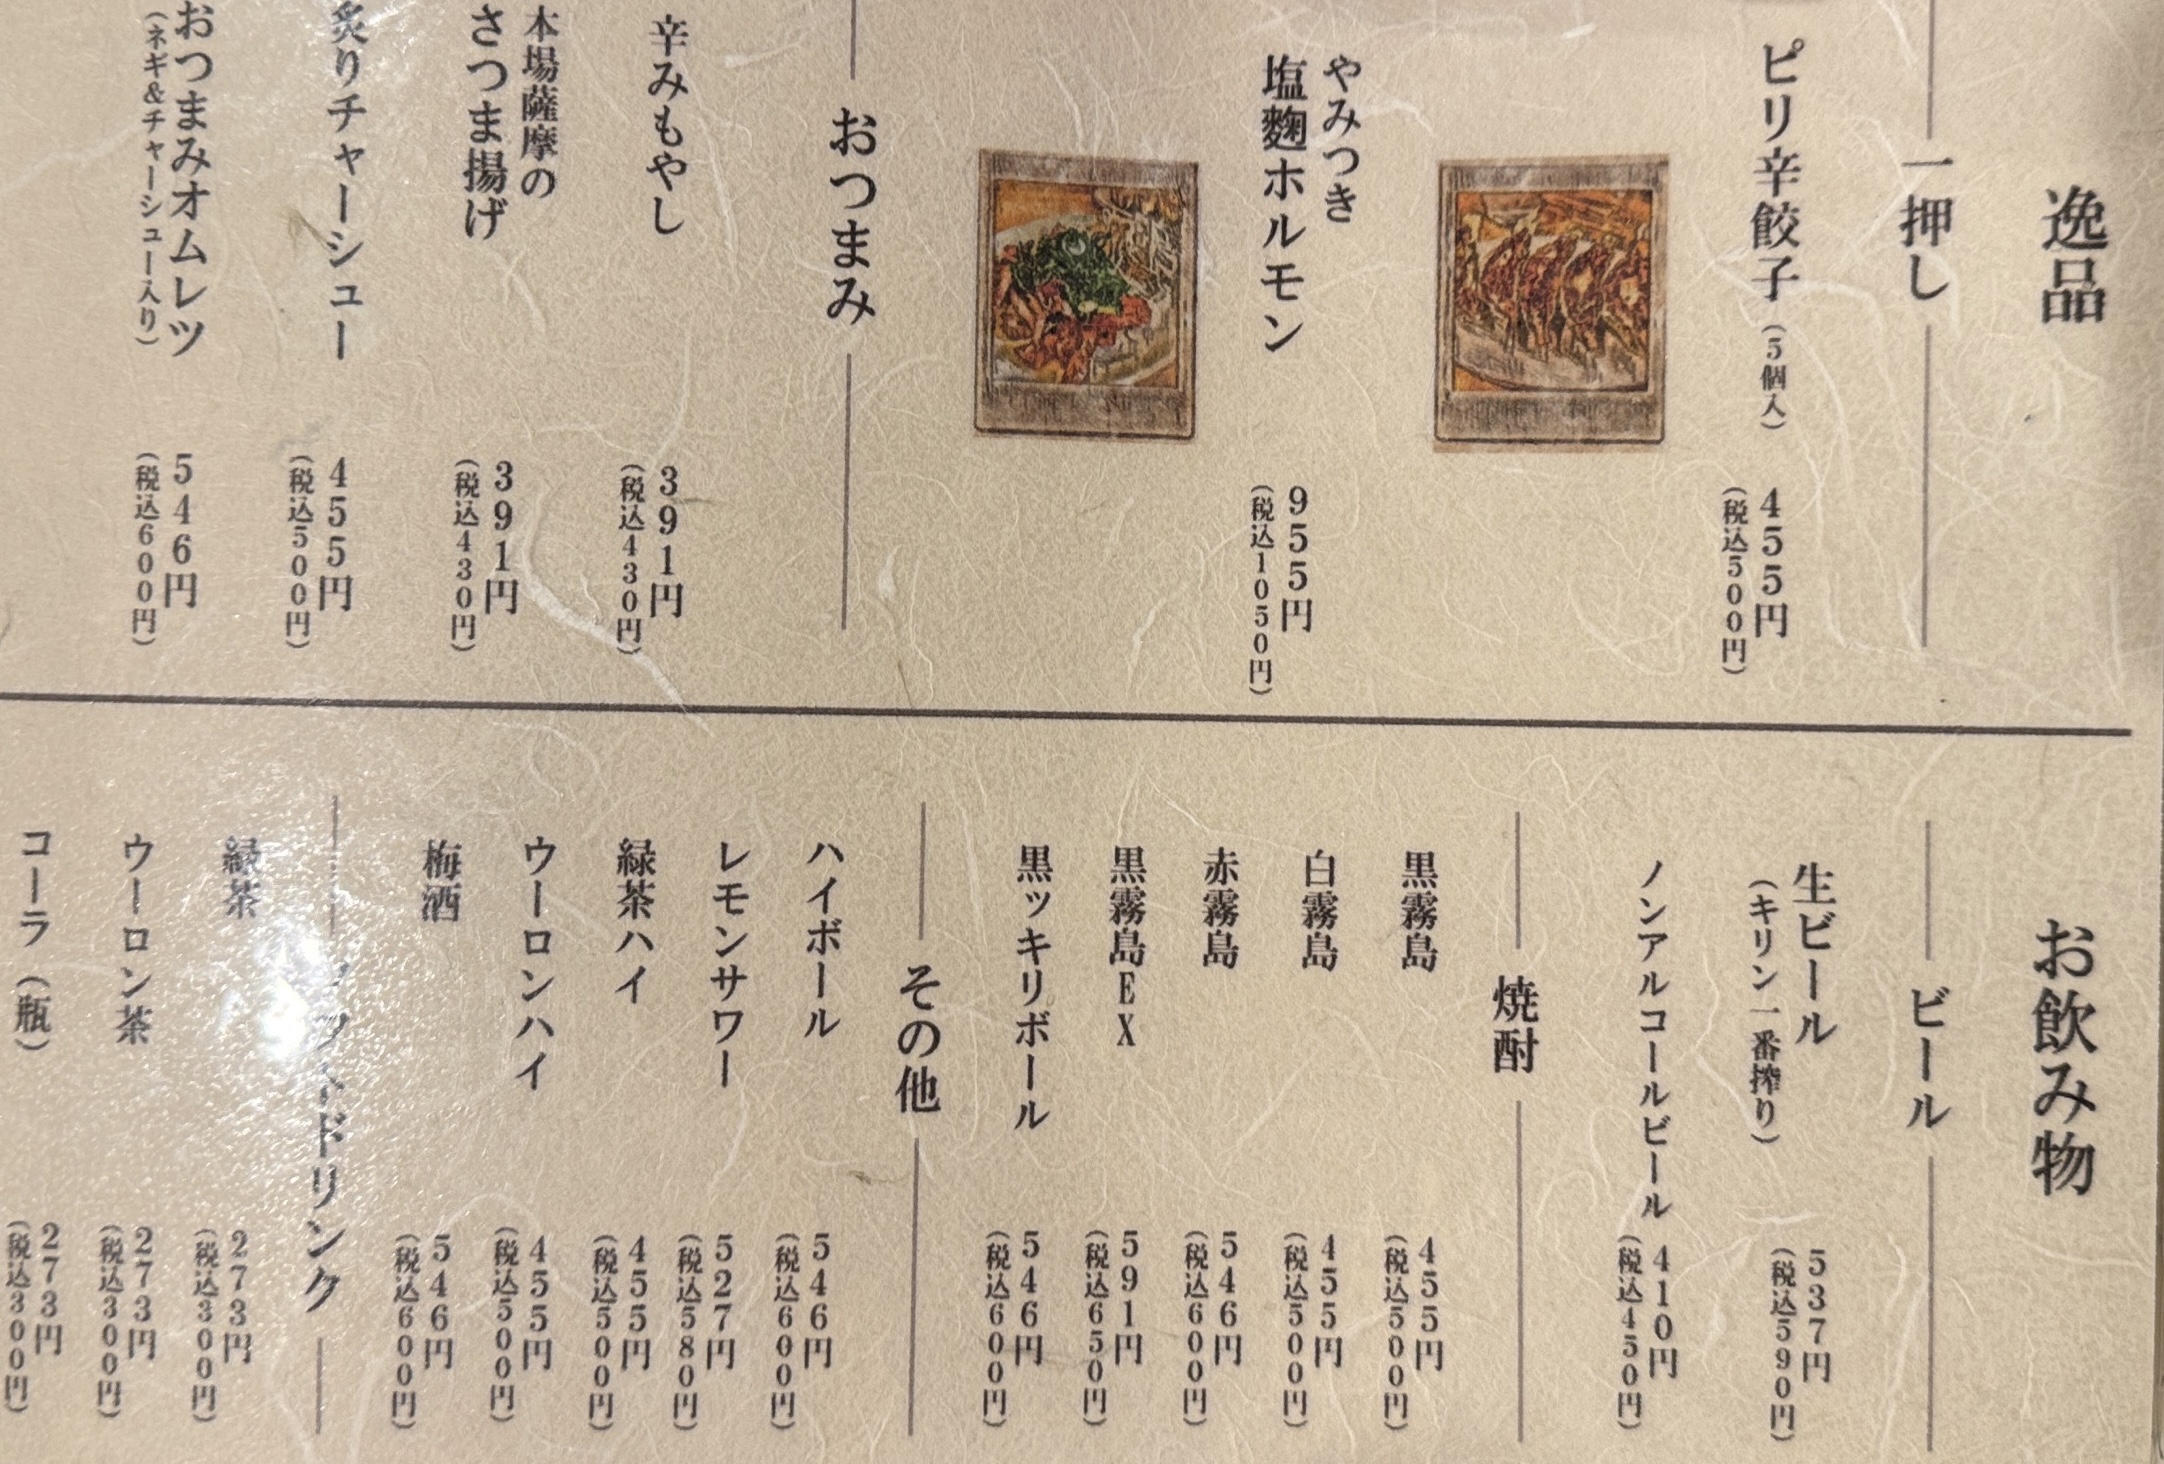 逸品
一押し
ピリ辛餃子（5個入）
455円
（税込500円）
やみつき
塩麴ホルモン
955円
（税込1050円）
おつまみ
辛みもやし
391円
（税込430円）
本場薩摩の
さつま揚げ
391円
（税込430円）
炙りチャーシュー
455円
（税込500円）
おつまみオムレツ
（ネギ&チャーシュー入り）
546円
（税込600円）
お飲み物
ビール
生ビール
（キリン一番搾り）
537円
（税込590円）
ノンアルコールビール
410円
（税込450円）
焼酎
黒霧島
455円
（税込500円）
白霧島
455円
（税込500円）
赤霧島
546円
（税込600円）
黒霧島EX
591円
（税込650円）
黒ッキリボール
546円
（税込600円）
その他
ハイボール
546円
（税込600円）
レモンサワー
527円
（税込580円）
緑茶ハイ
455円
（税込500円）
ウーロンハイ
455円
（税込500円）
梅酒
546円
（税込600円）
ソフトドリンク
緑茶
273円
（税込300円）
ウーロン茶
273円
（税込300円）
コーラ（瓶）
273円
（税込300円）